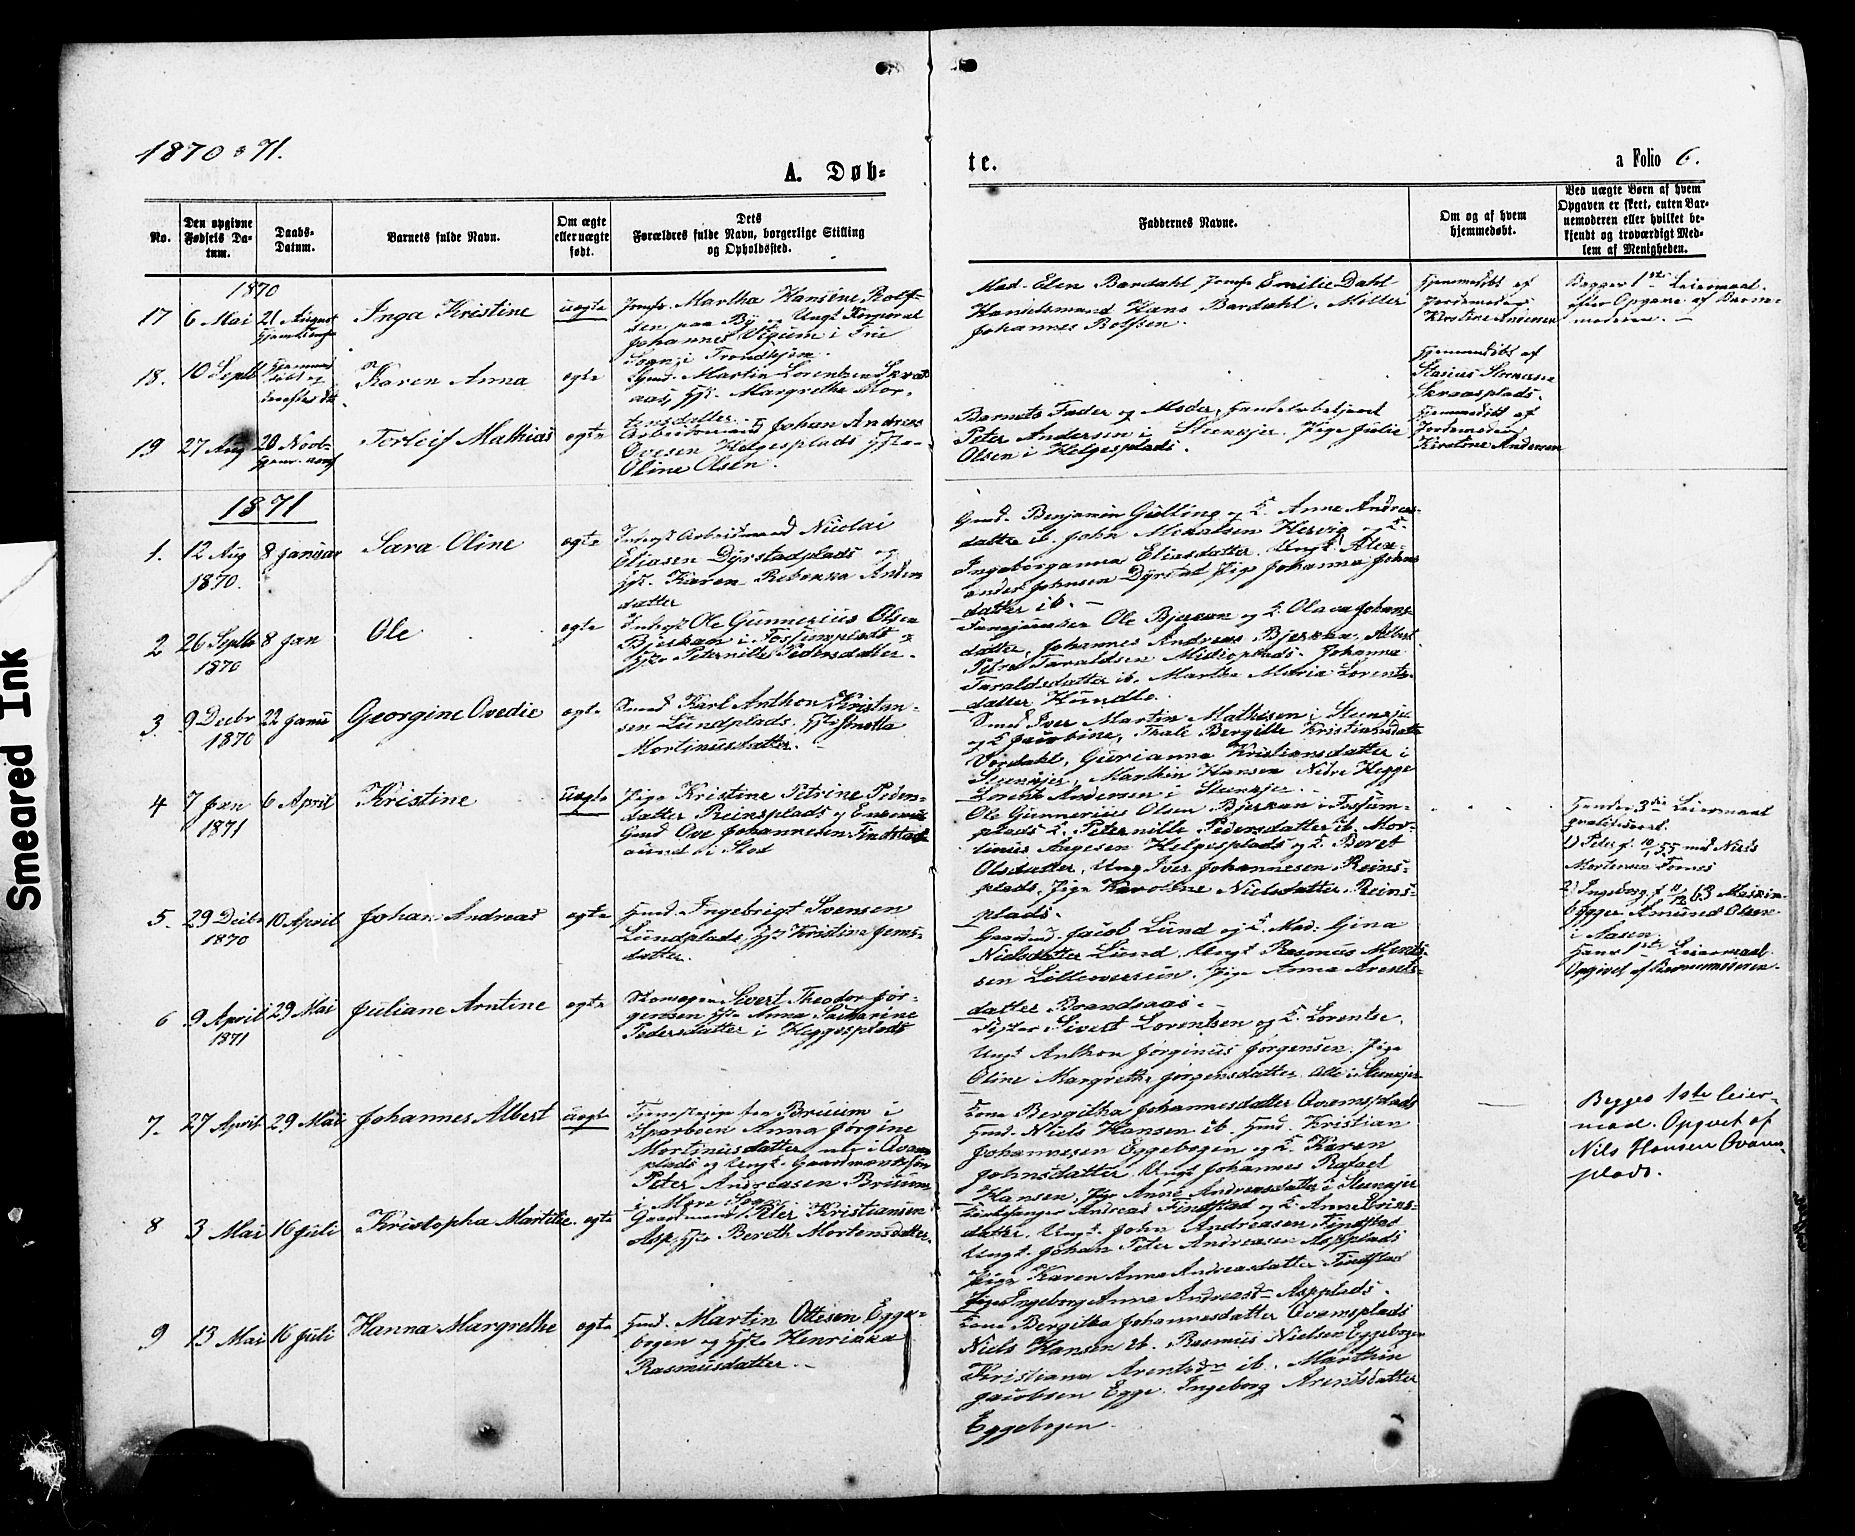 1870 & 71.
A. Døb-
te.
a Folio 6.
No.
Den opgivne Fødsels Da-tum.
Daabs-Datum.
Barnets fulde Navn.
Om ægte eller uægte født.
Dets Forældres fulde Navn, borgerlige Stilling og Opholdssted.
Faddernes Navne.
Om og af hvem hjemmedøbt.
Ved uægte Børn af hvem Opgaven er skeet, enten Bar-nemoderen eller hvilket be-kjendt og troværdigt Med-lem af Menigheden.
1870
17 6 Mai 21 August Inga Kristine uegte
Martha Hansine Rolf-
sen paa By og Ungk Korporal
Johannes Vigum i Frue
Sogn i Trondhjem.
Mad. Elen Bardahl Jomfr Emilie Dahl
Handelsmand Hans Bardahl. Møller
Johannes Rolfsen.
Hjemmedøbt af
Jordemoder
Kirstine Andersen
Begges 1ste Leiermaal
efter Opgave af Barne-
moderen. -
18. 10 Septb Karen Anna egte
Martin Lorentsen
Margrethe Mor-
tensdatter
Hjemmedøbt af
19 27 Aug 20 Novb Torleif Mathias egte
Arbeidsmand Johan Andreas
Ovesen Helgesplads
Oline Olsen.
Barnets Fader og Moder, Handelsbetjent
Peter Andersen i Steenkjer. Pige Julie
Olsen i Helgesplads.
Hjemmedøbt af
Jordemoder
Kirstine Andersen
1871
1. 12 Aug 8 Januar Sara Oline egte
1870.
Arbeidsmand Nicolai
Eliasen Dyrstadplads og
Karen Rebekka Anders
datter
Benjamin Gulling og K. Anne Andreas-
datter ib. John Mikalsen Hervig og K.
Ingeborganna Eliasdatter. Ungk Alex-
ander Johnsen Dyrstad, Pige Johanna Johns
datter ib. -
2 26 Septb 8 Jan Ole egte
1870
Ole Gunnerius Olsen
Bjerkan i Fossumplads og
Peternille Pedersdatter.
Ole Bjerkan og K. Olava Johans-
datter, Johannes Andreas Bjerkan, Albert
Petter Taraldsen Midioplads. Johanna
Taraldsdatter ib. Martha Maria Lorents-
datter Hundle.
3. 9 Decbr 22 Janu Georgine Ovedie egte
1870
Smed Karl Anthon Kristian-
sen Lundplads.
Mortinusdatter.
Smed Iver Martin Mathisen i Steenkjer
og K Jacobine, Thale Bergitte Kristiansdatter
Vordahl, Gurianna Kristiansdatter i
Steenkjer, Marthin Hansen Nedre Hegge
Lorents Andersen i Steenkjer.
4 7 Jan 6 April Kristine uegte
1871
Pige Kristine Petrine Peders-
datter Reinsplads og
Gmd Ove Johannesen Findstad
i Stod
Ole Gunnerius Olsen Bjerkan i Fossum-
plads K. Peternille Pedersdatter ib. Mor-
tinus Aagesen Helgesplads og K. Beret
Olsdatter, Ung Iver Johannesen Reins-
plads, Pige Karoline Nielsdatter Reins-
plads.
Hendes 3die Leiermaal
1) Peter f. 10/1 55 med Niels
Mortensen Fornes
2) Ingeborg f 11/12 63
Amund Olsen
i Aasen
Hans 1ste Leiermaal
Opgivet af Barnemoderen.
5. 29 Decbr 10 April Johan Andreas egte
1870
Ingebrigt Svensen
Lundplads, Kristine Jens-
datter.
Jacob Lund og K. Mad. Gina
Nielsdatter Lund, Ungk Rasmus
sen Litleoverrein. Pige Anna Arents-
datter Brandsaas.
6 9 April 29 Mai Juliane Arntine egte
1871
Sivert Theodor Jør-
gensen Anna Katharine
Pedersdatter i Heggesplads
Fisker Sivert Lorentsen og K. Lorentse,
Ungk Anthon Jørginus Jørgensen. Pige
Oline Margrethe Jørgensdatter. Alle i Steenkjer
7. 27 April 29 Mai Johannes Albert uegte
Tjenestepige fra Bruum i
Sparboen Anna Jørgine
Mortinusdatter nu i Qvam-
plads og Ungk. Gaardmandssøn
Peter Andreasen Bruum
i Mære Sogn.
Kone Bergitha Johannesdatter Qvamsplads
Niels Hansen ib. Kristian
Johannesen Eggebogen og K. Karen
Johnsdatter, Ungk Johannes Rafael
Hansen, Pige Anne Andreasdatter i Steenkjer
Begges 1ste Leier-
maal. Opgivet af
Nils Hansen Qvams-
plads.
8 3 Mai 16 Juli Kristopha Martitie egte
Gaardmand Peter Kristiansen
Asp Bereth Mortensdatter.
Kirkesanger Andreas Findstad og K. Anne
datter, Ungk. John Andreasen Findstad
Ungk. Johan Peter Andreasen Aspplads
Pige Karen Anna Andreasdatter Findstad
Pige Ingeborg Anna Andreasdr Aspplads.
9 13 Mai 16 Juli Hanna Margrethe egte
Martin Ottesen Egge-
bogen og Henrikka
Rasmusdatter. -
Kone Bergitha Johannesdatter Qvamsplads
Niels Hansen ib. Rasmus Nielsen Eggebogen
Kristiana Arentsdr ib. Marthin
Jacobsen Egge. Ingeborg Arentsdatter
Eggebogen.
Smeared Ink